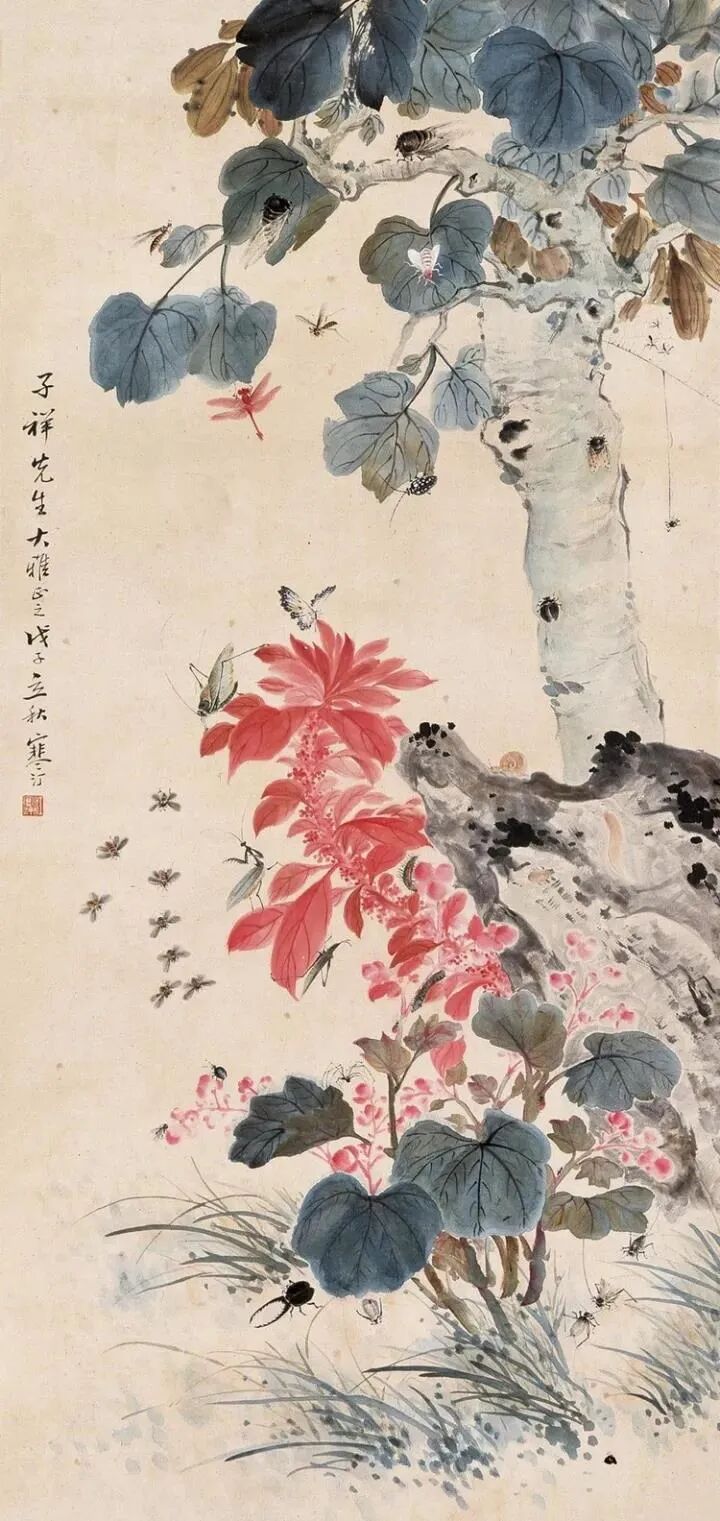 子祥先生大雅正之戊子立秋寒汀